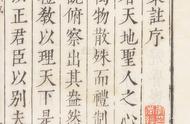 集註序
天地聖人之心
萬物散殊而禮制
俯察出其盎然
教以理天下是
正君臣以別夫